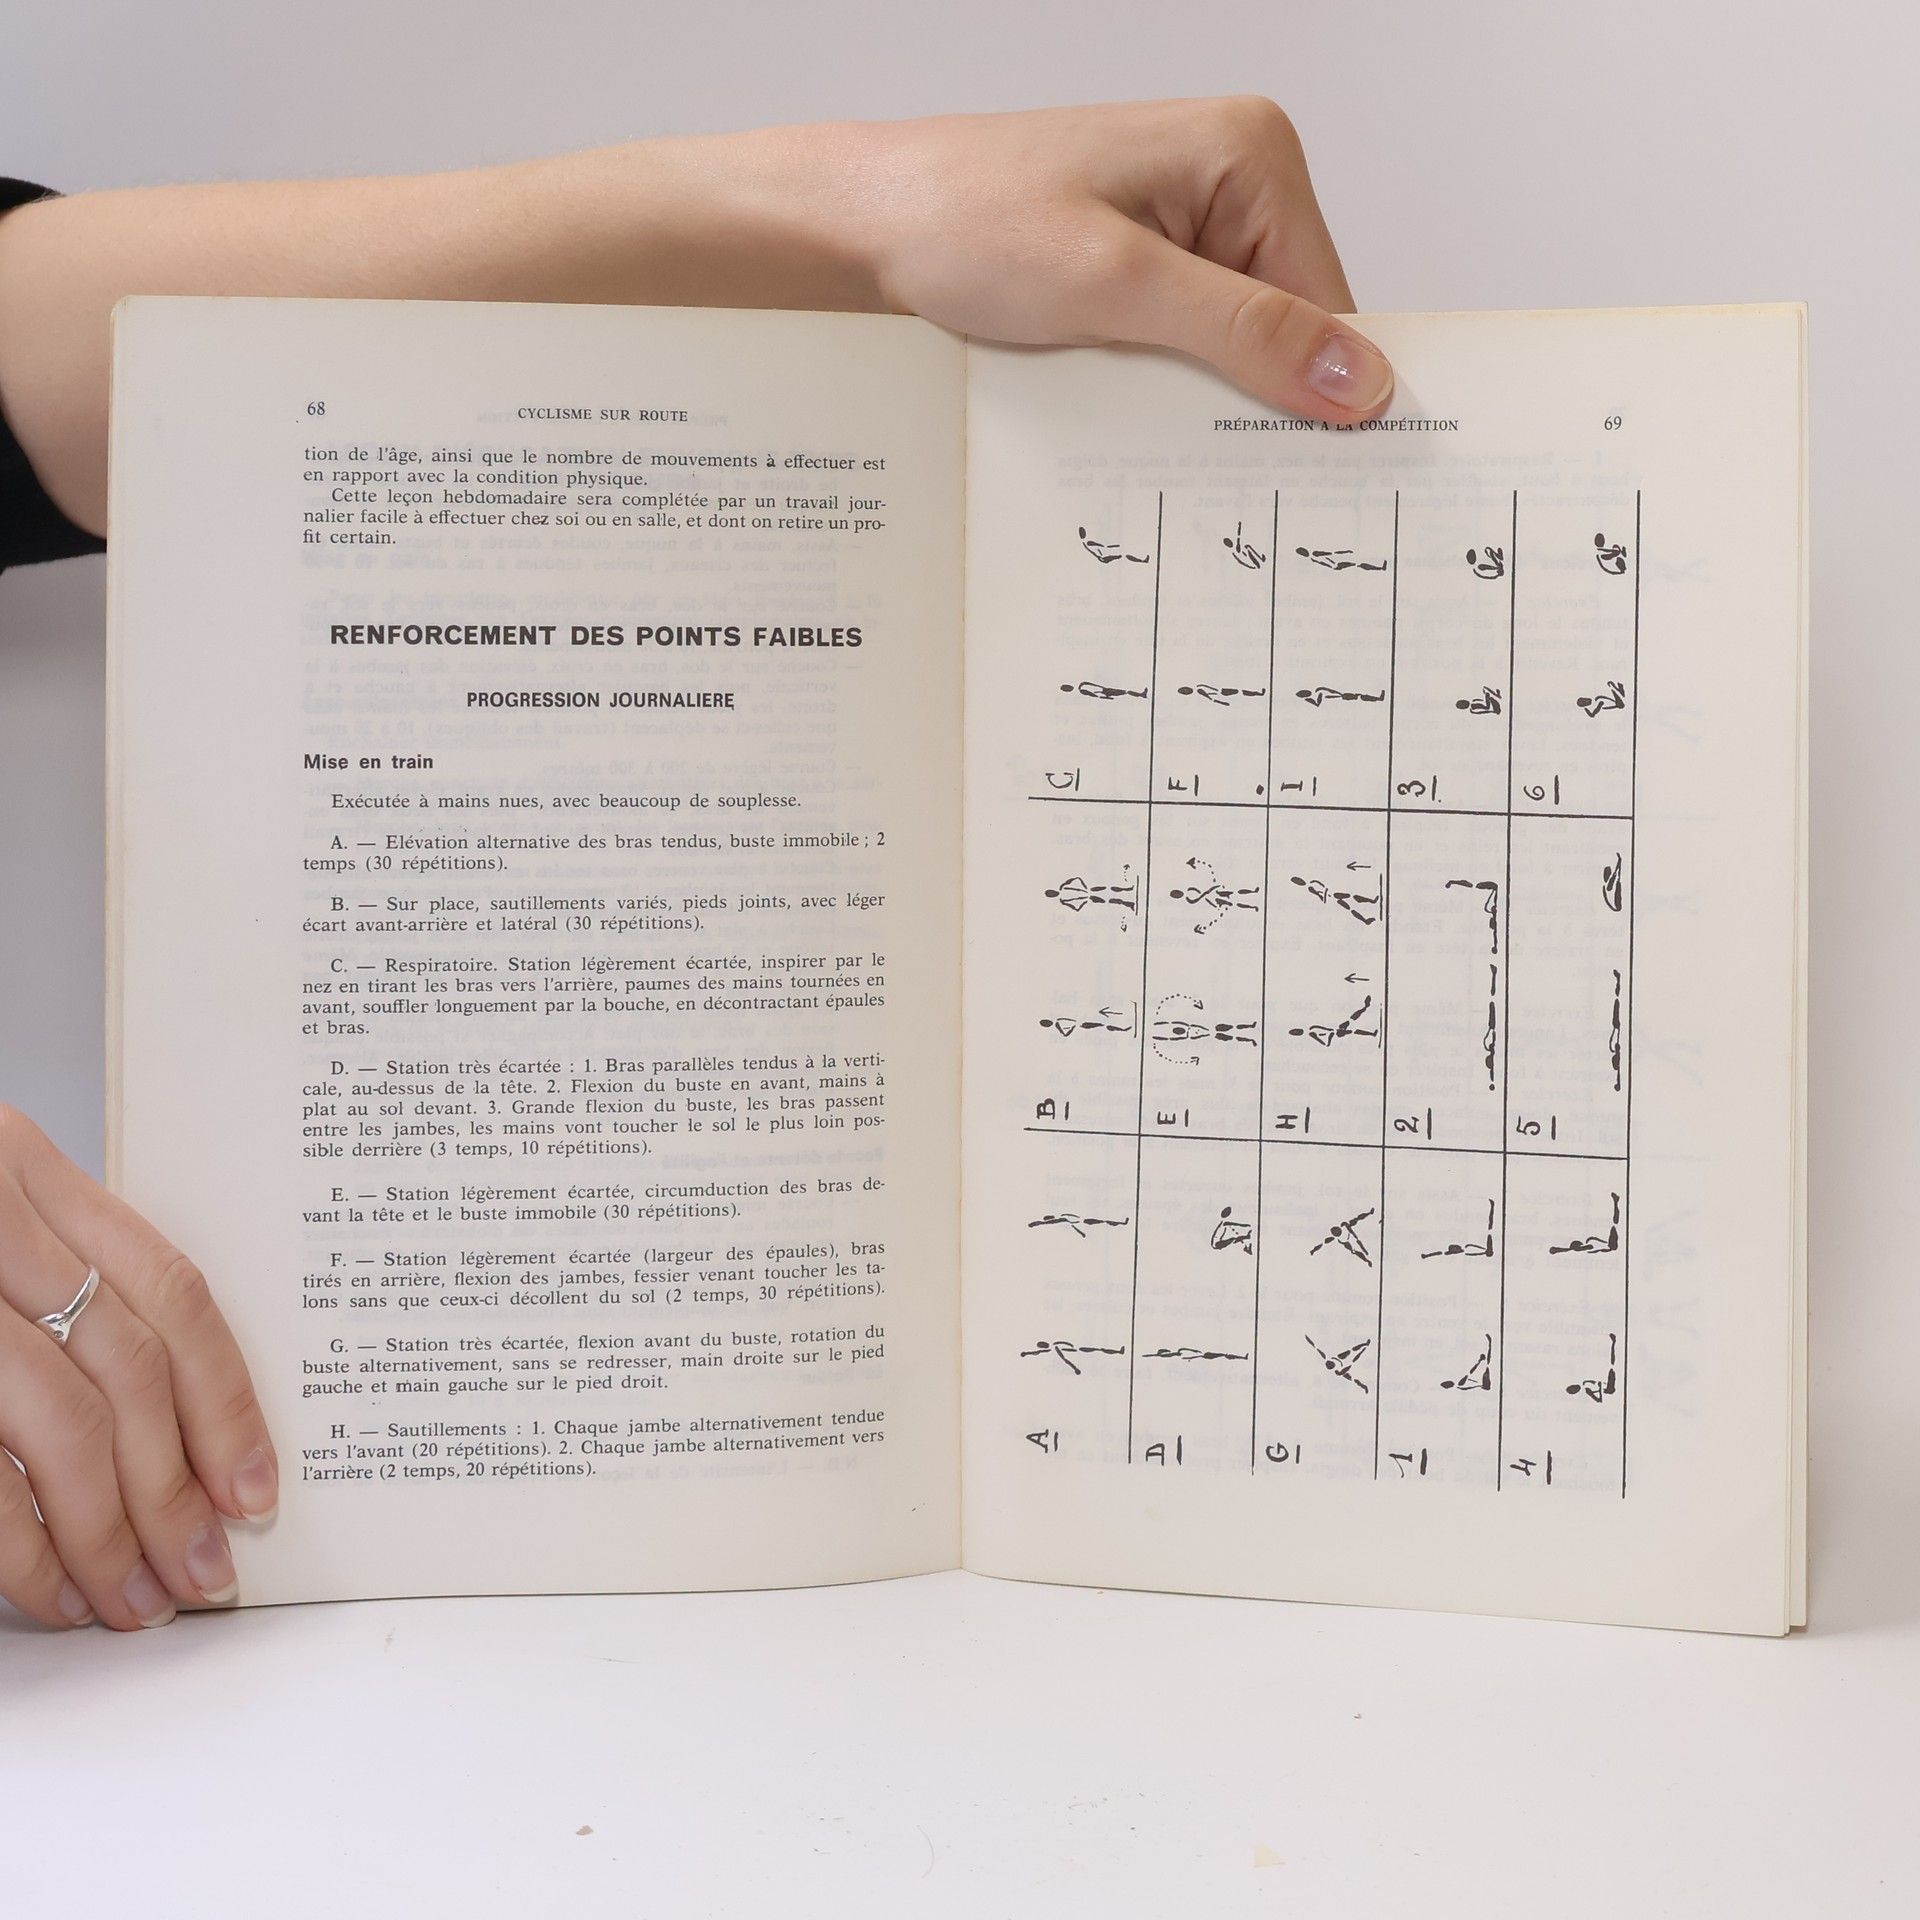 68
CYCLISME SUR ROUTE
tion de l'âge, ainsi que le nombre de mouvements à effectuer est
en rapport avec la condition physique.
Cette leçon hebdomadaire sera complétée par un travail jour-
nalier facile à effectuer chez soi ou en salle, et dont on retire un pro-
fit certain.
RENFORCEMENT DES POINTS FAIBLES
PROGRESSION JOURNALIERE
Mise en train
Exécutée à mains nues, avec beaucoup de souplesse.
A. — Elévation alternative des bras tendus, buste immobile ; 2
temps (30 répétitions).
B. — Sur place, sautillements variés, pieds joints, avec léger
écart avant-arrière et latéral (30 répétitions).
C. — Respiratoire. Station légèrement écartée, inspirer par le
nez en tirant les bras vers l'arrière, paumes des mains tournées en
avant, souffler longuement par la bouche, en décontractant épaules
et bras.
D. — Station très écartée : 1. Bras parallèles tendus à la verti-
cale, au-dessus de la tête. 2. Flexion du buste en avant, mains à
plat au sol devant. 3. Grande flexion du buste, les bras passent
entre les jambes, les mains vont toucher le sol le plus loin pos-
sible derrière (3 temps, 10 répétitions).
E. — Station légèrement écartée, circumduction des bras de-
vant la tête et le buste immobile (30 répétitions).
F. — Station légèrement écartée (largeur des épaules), bras
tirés en arrière, flexion des jambes, fessier venant toucher les ta-
lons sans que ceux-ci décollent du sol (2 temps, 30 répétitions).
G. — Station très écartée, flexion avant du buste, rotation du
buste alternativement, sans se redresser, main droite sur le pied
gauche et main gauche sur le pied droit.
H. — Sautillements : 1. Chaque jambe alternativement tendue
vers l'avant (20 répétitions). 2. Chaque jambe alternativement vers
l'arrière (2 temps, 20 répétitions).
PRÉPARATION A LA COMPÉTITION
69
A B C
D E F
G H I
1 2 3
4 5 6